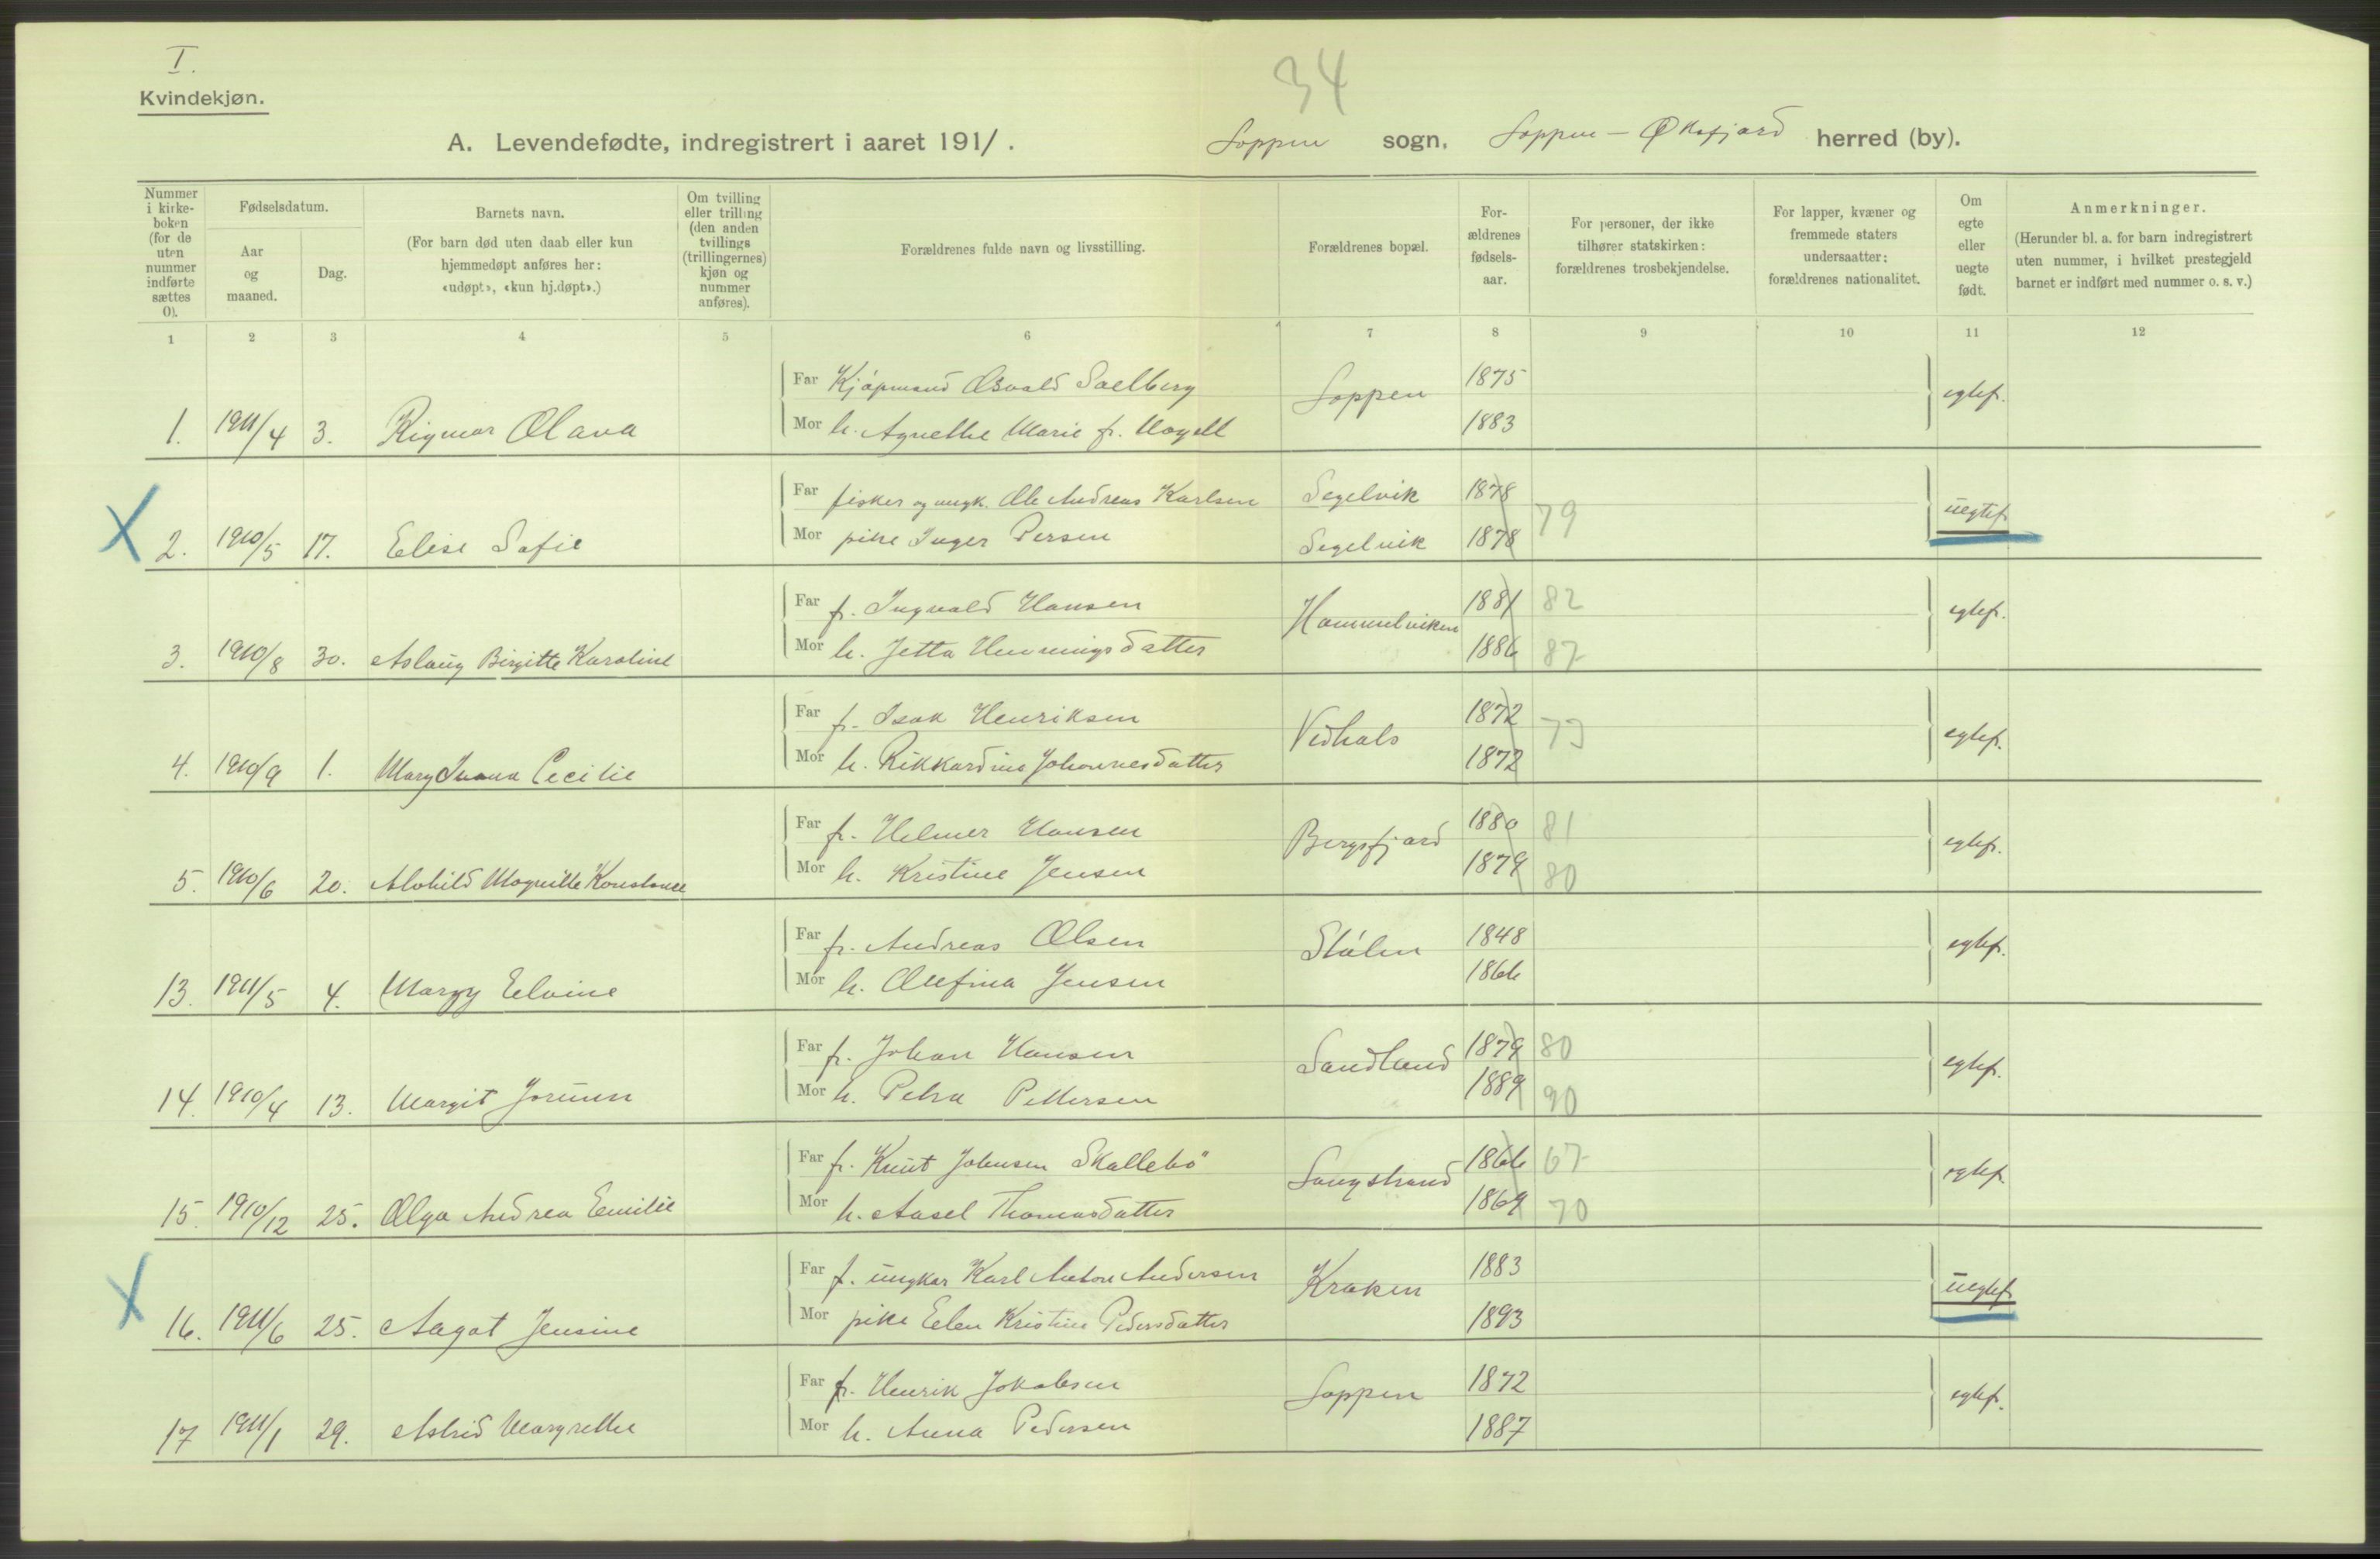 I.
34
Kvindekjøn.
A. Levendefødte, indregistrert i aaret 1911. Loppen sogn, Loppen – Øksfjord herred (by).
Nummer i kirkeboken (for de uten nummer indførte sættes 0).
Fødselsdatum.
Aar og maaned.
Dag.
Barnets navn.
(For barn død uten daab eller kun hjemmedøpt anføres her: «udøpt», «kun hj.døpt».)
Om tvilling eller trilling (den anden tvillings (trillingernes) kjøn og nummer anføres).
Forældrenes fulde navn og livsstilling.
Forældrenes bopæl.
Forældrenes fødselsaar.
For personer, der ikke tilhører statskirken: forældrenes trosbekjendelse.
For lapper, kvæner og fremmede staters undersaatter: forældrenes nationalitet.
Om egte eller uegte født.
Anmerkninger.
(Herunder bl. a. for barn indregistrert uten nummer, i hvilket prestegjeld barnet er indført med nummer o. s. v.)
1 2 3 4 5 6 7 8 9 10 11 12
Far Kjøpmand Osvald Saelberg Loppen 1875 egtef.
1. 1911/4 3. Rigmor Olava Mor h. Agnethe Marie f. 1883
Far fisker og ungk. Ole Andreas Karlsen Segelvik 1878 79 uegtef
X 2. 1910/5 17. Elise Sofie Mor pike Inger Persen Segelvik 1878
Far f. Ingvald Hansen Hammelviken 1881 82 egtef.
3. 1910/8 30. Aslaug Birgitte Karoline Mor h. Jetta Henningsdatter 1886 87
Far f. Isak Henriksen Vedhals 1872 73 egtef.
4. 1910/9 1. Mary Cecilie Mor h. Rikkardine Johannesdatter 1872
Far f. Helmer Hansen Bergsfjord 1880 81 egtef.
5. 1910/6 20. Alvhild Magnille Konstance Mor h. Kristine Jensen 1879 80
Far f. Andreas Olsen Stålen 1848 egtef.
13. 1911/5 4. Margy Elvine Mor h. Olefina Jensen 1866
Far f. Johan Hansen Sandland 1879 80 egtef.
14. 1910/4 13. Margit Jorunn Mor h. Petra Pettersen 1889 90
Far f. Knut Johnsen Skallebö Langstrand 1866 67 egtef.
15. 1910/12 25. Olga Andrea Emilie Mor h. Aasel Thomasdatter 1869 70
Far f. ungkar Karl Anton Andersen Kraken 1883 uegtef
X 16. 1911/6 25. Aagot Jensine Mor pike Elen Kristine Pedersdatter 1893
Far f. Henrik Jakobsen Loppen 1872 egtef.
17 1911/1 29. Astrid Margrethe Mor h. Anna Pedersen 1887